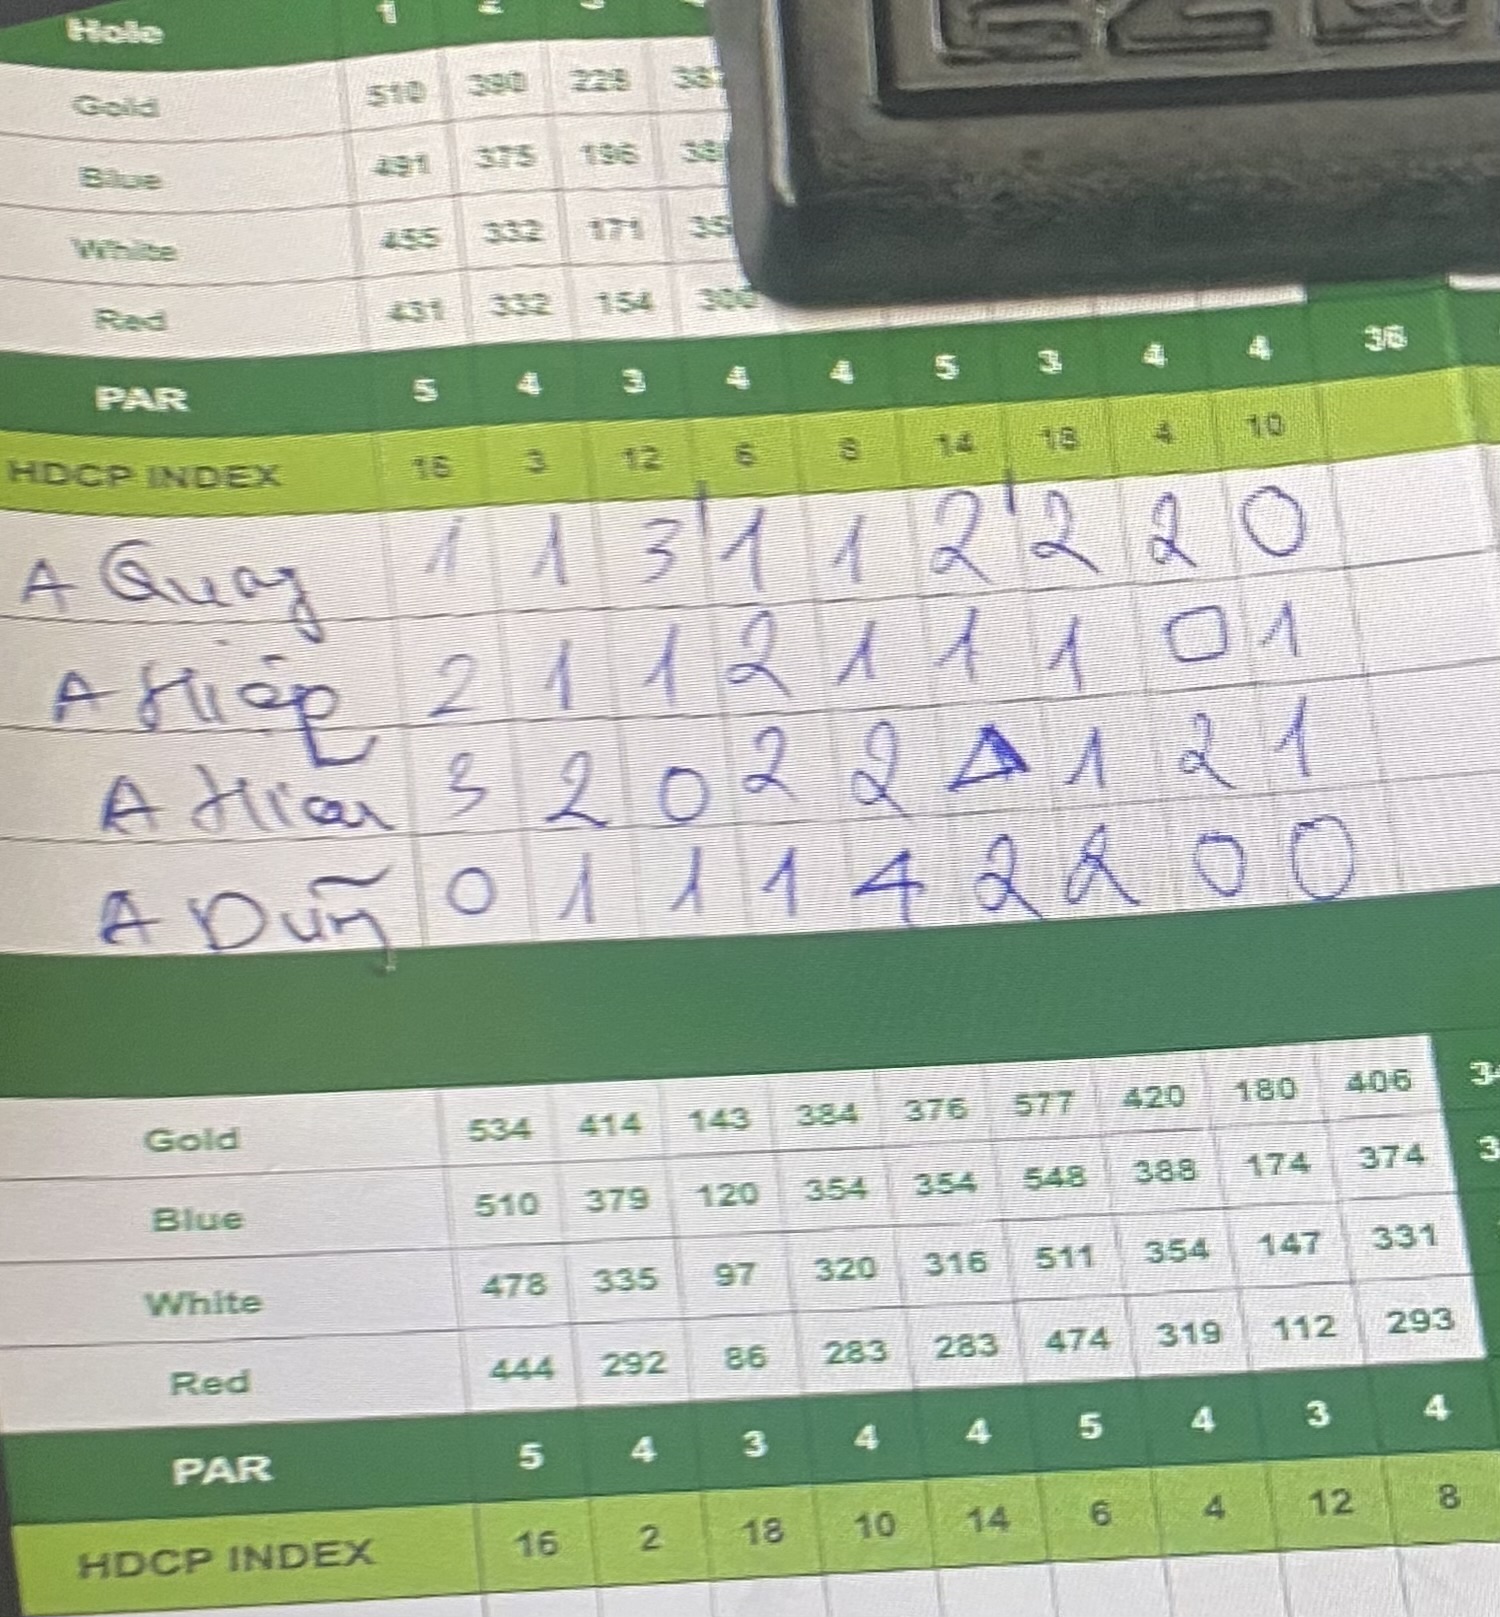 Hole 1 2 3
Gold 510 390 228
Blue 491 375 196
White 455 332 171
Red 431 332 154 300
PAR 5 4 3 4 4 5 3 4 4 36
HDCP INDEX 16 3 12 6 8 14 18 4 10
A Quang 1 1 3 1 1 2 2 2 0
A Hiệp 2 1 1 2 1 1 1 0 1
A Hiền 3 2 0 2 2 Δ 1 2 1
A Dũng 0 1 1 1 4 2 2 0 0
Gold 534 414 143 384 376 577 420 180 406
Blue 510 379 120 354 354 548 388 174 374
White 478 335 97 320 316 511 354 147 331
Red 444 292 86 283 283 474 319 112 293
PAR 5 4 3 4 4 5 4 3 4
HDCP INDEX 16 2 18 10 14 6 4 12 8